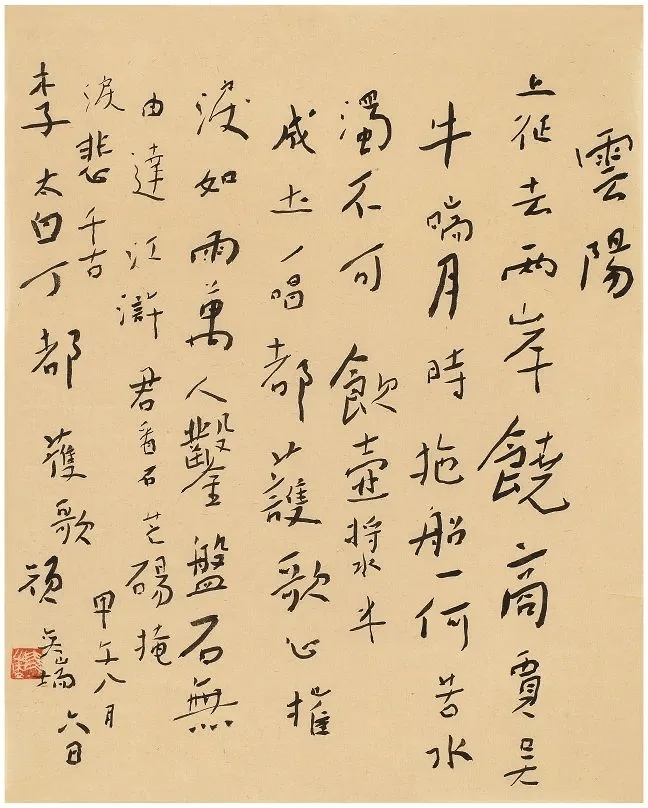 雲陽
上征去兩岸饒商賈吳
牛喘月時拖船一何苦水
濁不可飲壺漿半
成土一唱都護歌心摧
淚如雨萬人鑿盤石無
由達江滸君看石芒碭掩
淚悲千古
李太白丁都護歌
甲午八月
六日